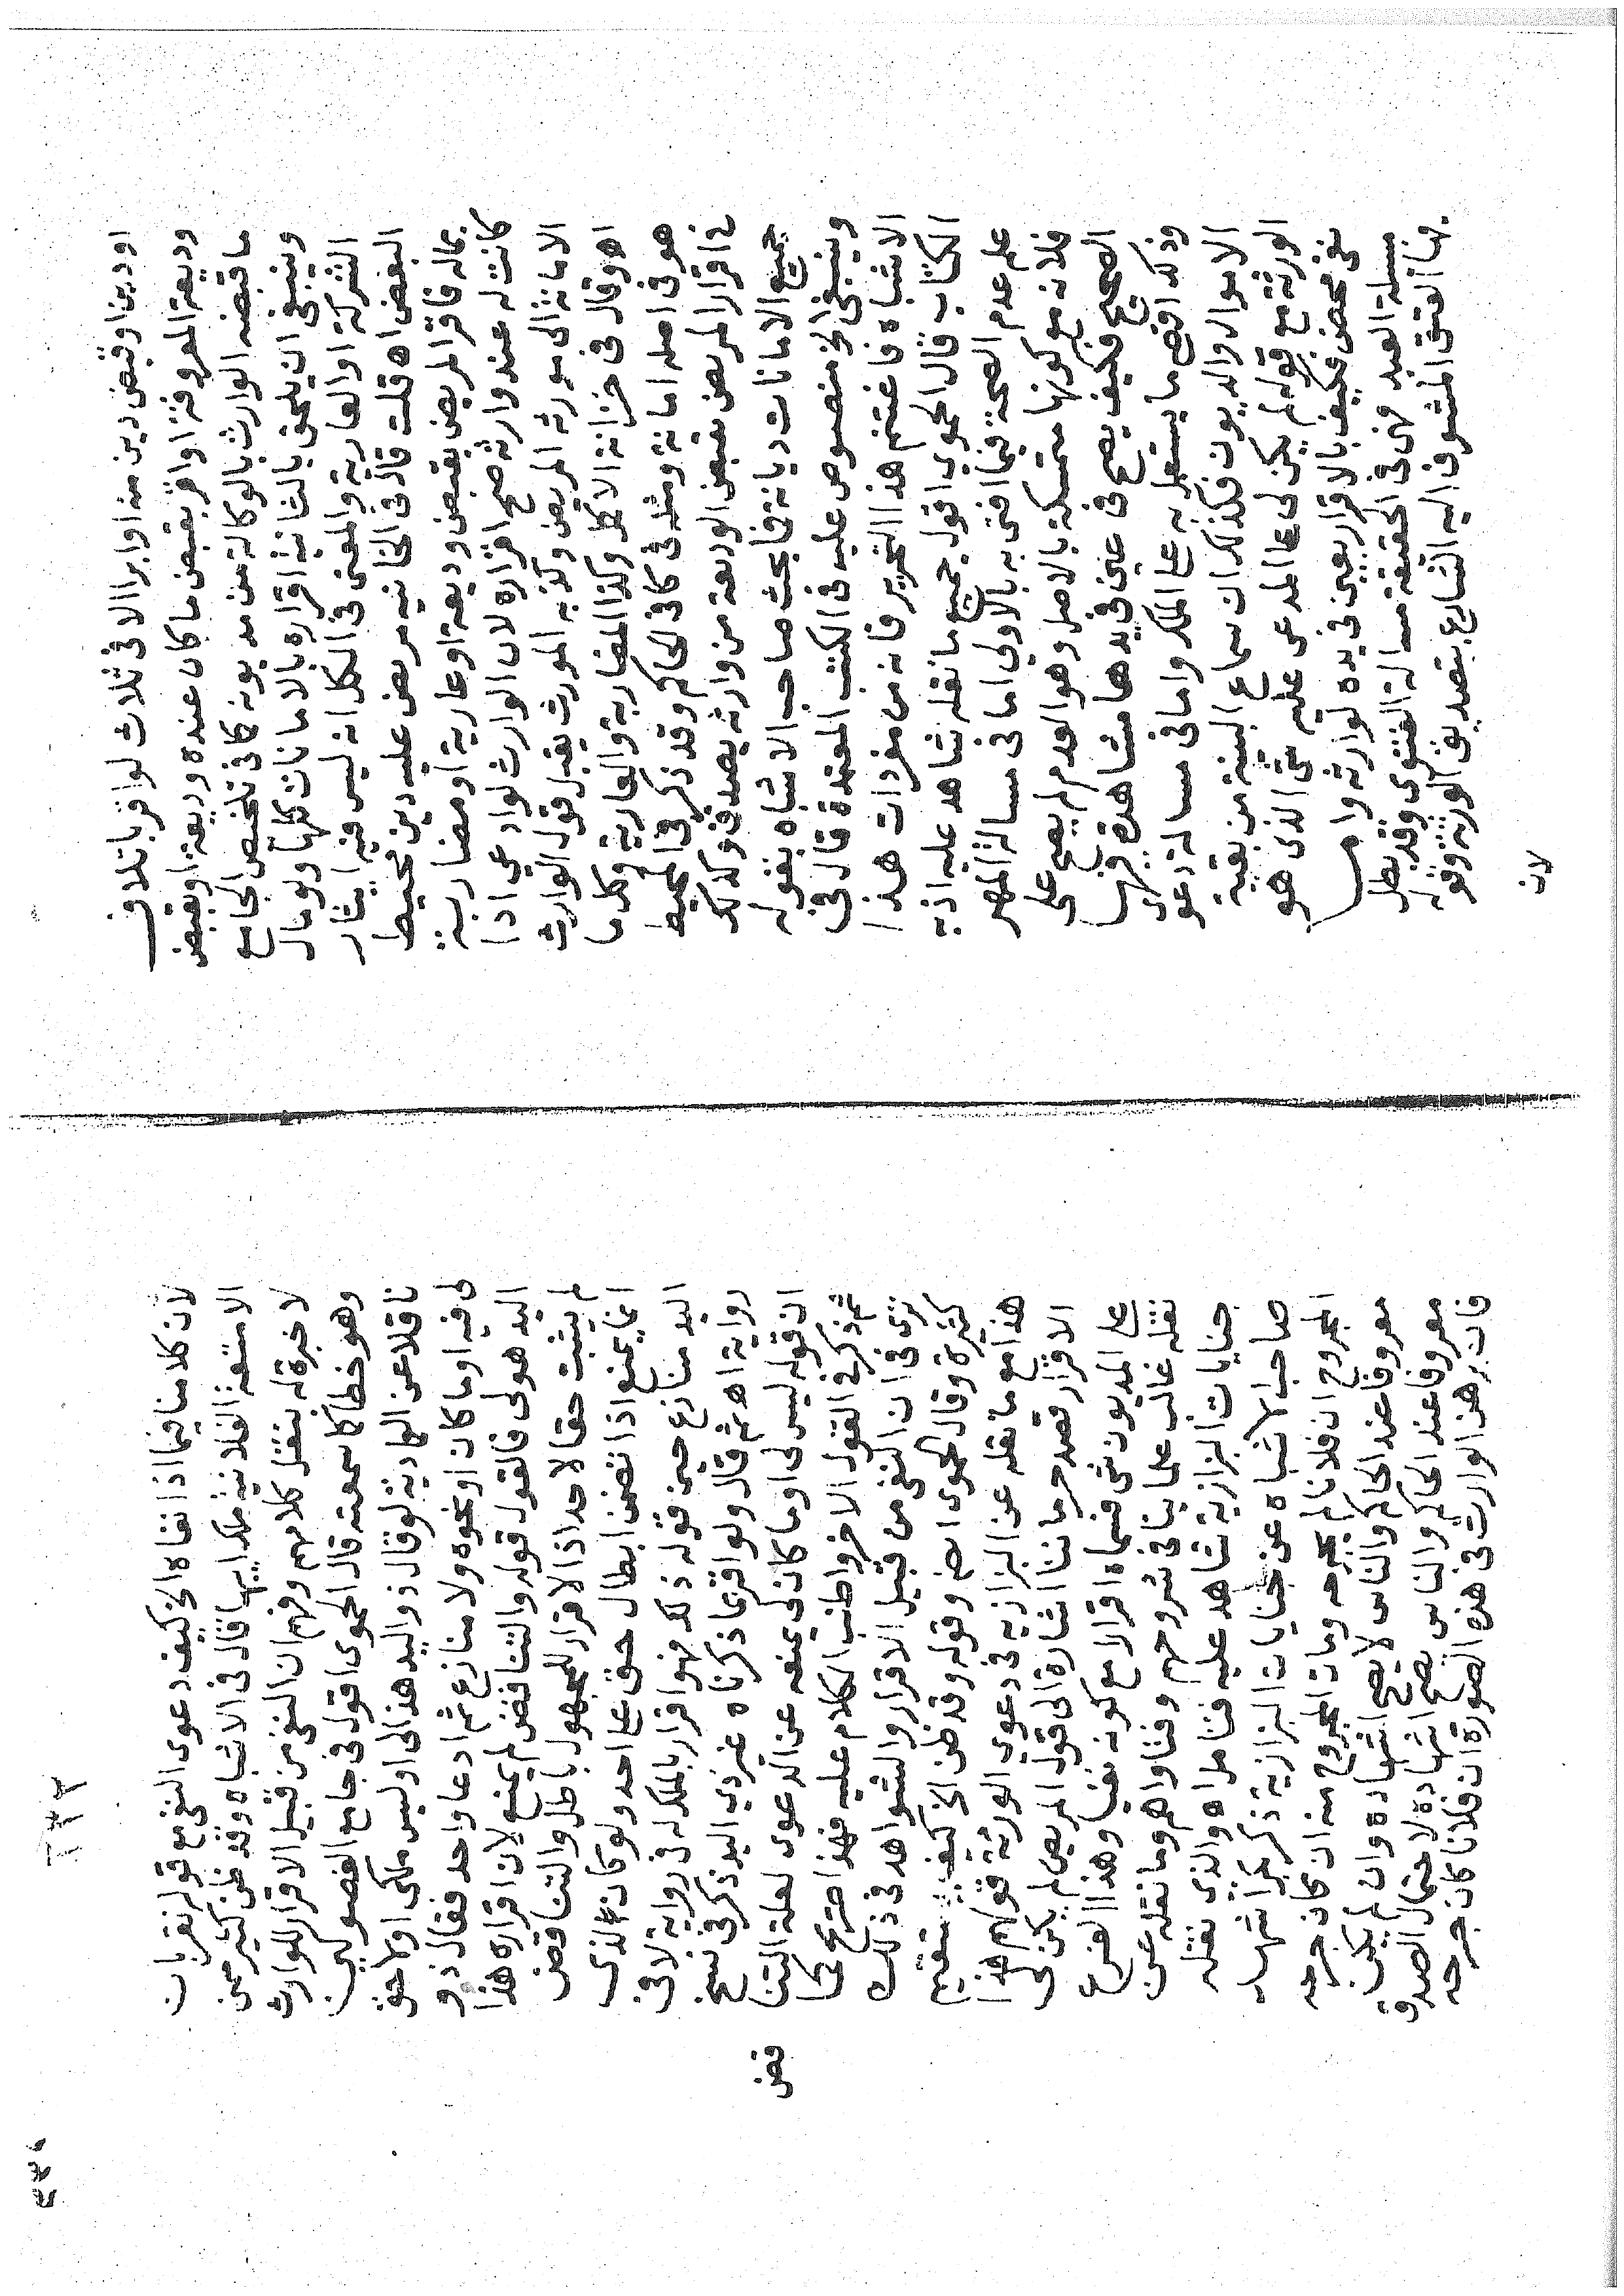 او دين او قبض دين منه او ابرا الا في ثلاث لو اقر باتلاف
وديعة المعروفة او اقر بقبض ما كان عنده وديعة او بقبض
ما قبضه الوارث بالوكالة من مديونه كما في تلخيص الجامع
وينبغي ان يلحق بالثانية اقراره بالامانات كلها ولو مال
الشركة او العارية والمعنى في الكل انه ليس فيه ايثار
البعض اه قلت قال في الخانيه مريض عليه دين محيط
بماله فاقر المريض بقبض وديعة او عارية او مضاربة
كانت له عند وارثه صح اقراره لان الوارث لو ادعى اداء
الامانة الى مورثه المريض وكذبه المورث يقبل قول الوارث
اه وقال في خزانة الاكمل وكذا المضاربة والعارية وكل ما
هو في اصله امانة ومثله في كافي الحاكم وقد ذكر في المحيط
في اقرار المريض بقبض الوديعة من وارثه يصدق وكذلك
جميع الامانات ديانة فما بحث صاحب الاشباه بقوله
وينبغي الخ منصوص عليه في الكتب المعتمدة قال في
الاشباه فاغتنم هذا التحرير فانه من مفردات هذا
الكتاب قال الحموي اقول جميع ما نقله شاهد عليه اذ به
علم عدم الصحة فيما افتى به بالاولى اما في مسالة المهر
فلانه مع كونها متمسكة بالاصل وهو العدم لم يصح على
الصحيح فكيف يصح في عين في يدها مشاهدة فيها
وذلك اقصى ما يستعمل به على الملك واما في مسالة دعوى
الاموال والديون فكذلك ان سماع البينة من بقية
الورثة مع قوله لم يكن لي على المدعى عليه شي الذي هو
نفي محض فكيف بالاقرار بعين في يده لوارثه واما
مسئلة العبد فهي في الحقيقة مسالة الفتوى وقد بطل
فيها العتق المتشوف اليه الشارع بتصديق الورثة وقوله
لان
٢٣٢
لان كلامنا فيما اذا نفاه الخ كيف دعوى النفي مع قولها بان
الامتعة الفلانية ملك ابيها قال في الاشباه وقد ظن كثير ممن
لا خبرة له بنقل كلامهم وفهم ان النفي من قبيل الاقرار للوارث
وهو خطا كما سمعته قال الحموي اقول في جامع الفصولين
ناقلا عن العمادية لو قال ذو اليد هذا لي او ليس ملكي او لا حق
لي فيه او ما كان او نحوه ولا منازع ثم ادعاه احد فقال ذو
اليد هو لي فالقول قوله والتناقض لم يمنع لان اقراره هذا
لم يثبت حقا لاحد اذ الاقرار للمجهول باطل والتناقض
انما يمنع اذا تضمن ابطال حق على احد ولو كان لذي
اليد منازع حين قوله ذلك فهو اقرار بالملك له في رواية لا في
رواية اه ثم قال ولو اقر بما ذكرناه غير ذي اليد ذكر في نسخ
ان قوله ليس لي او ما كان لي يمنعه عن الدعوى لعلة التنا
قض
ثم ذكر في القول الاخر واطنب الكلام عليه فهذا صريح كما
ترى في ان النفي من قبيل الاقرار والشواهد في ذلك
كثيرة وقال الحموي ايضا وقوله وقد ظن الخ كيف يستقيم
هذا مع ما نقله عن البزازية في دعوى الورثة قولهم هذا
الاقرار قصد حرماننا اشارة الى قول المريض لم يكن لي
على المديون شي فسماه اقرارا مع كونه نفيا وهذا الفرع
نقله غالب علمائنا في شروحهم وفتاواهم وما نقله عن
جنايات البزازية شاهد عليه فتامل اه والذي نقله
صاحب الاشباه عن جنايات البزازية ذكر بكر اشهد
المجروح ان فلانا لم يجرحه ومات المجروح منه ان كان جرحه
معروفا عند الحاكم والناس لا يصح اشهاده وان لم يكن
معروفا عند الحاكم والناس يصح اشهاده لاحتمال الصدق
فان برهن الوارث في هذه الصورة ان فلانا كان جرحه